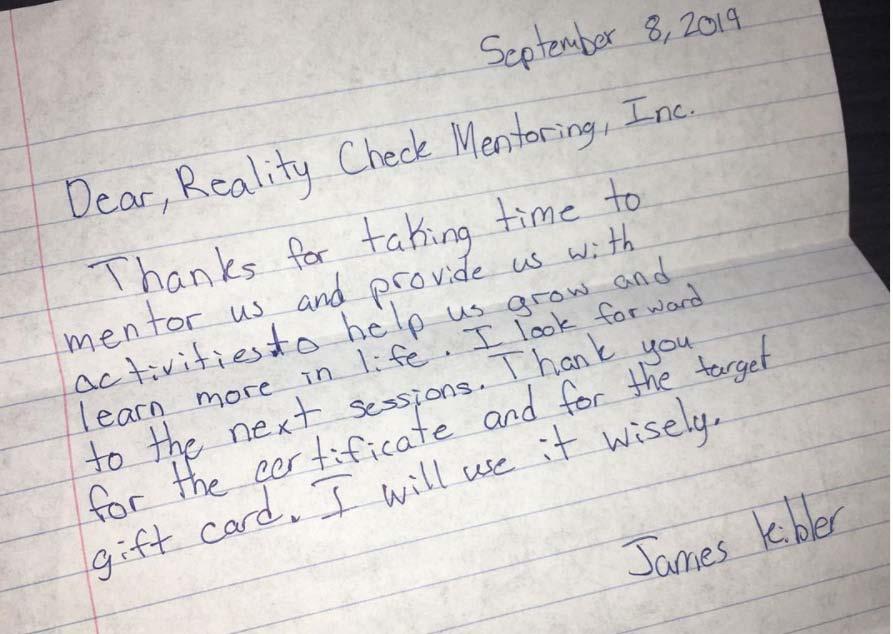 September 8, 2019
Dear, Reality Check Mentoring, Inc.
Thanks for taking time to
mentor us and provide us with
activities to help us grow and
learn more in life. I look forward
to the next sessions. Thank you
for the certificate and for the target
gift card. I will use it wisely.
James Kibler